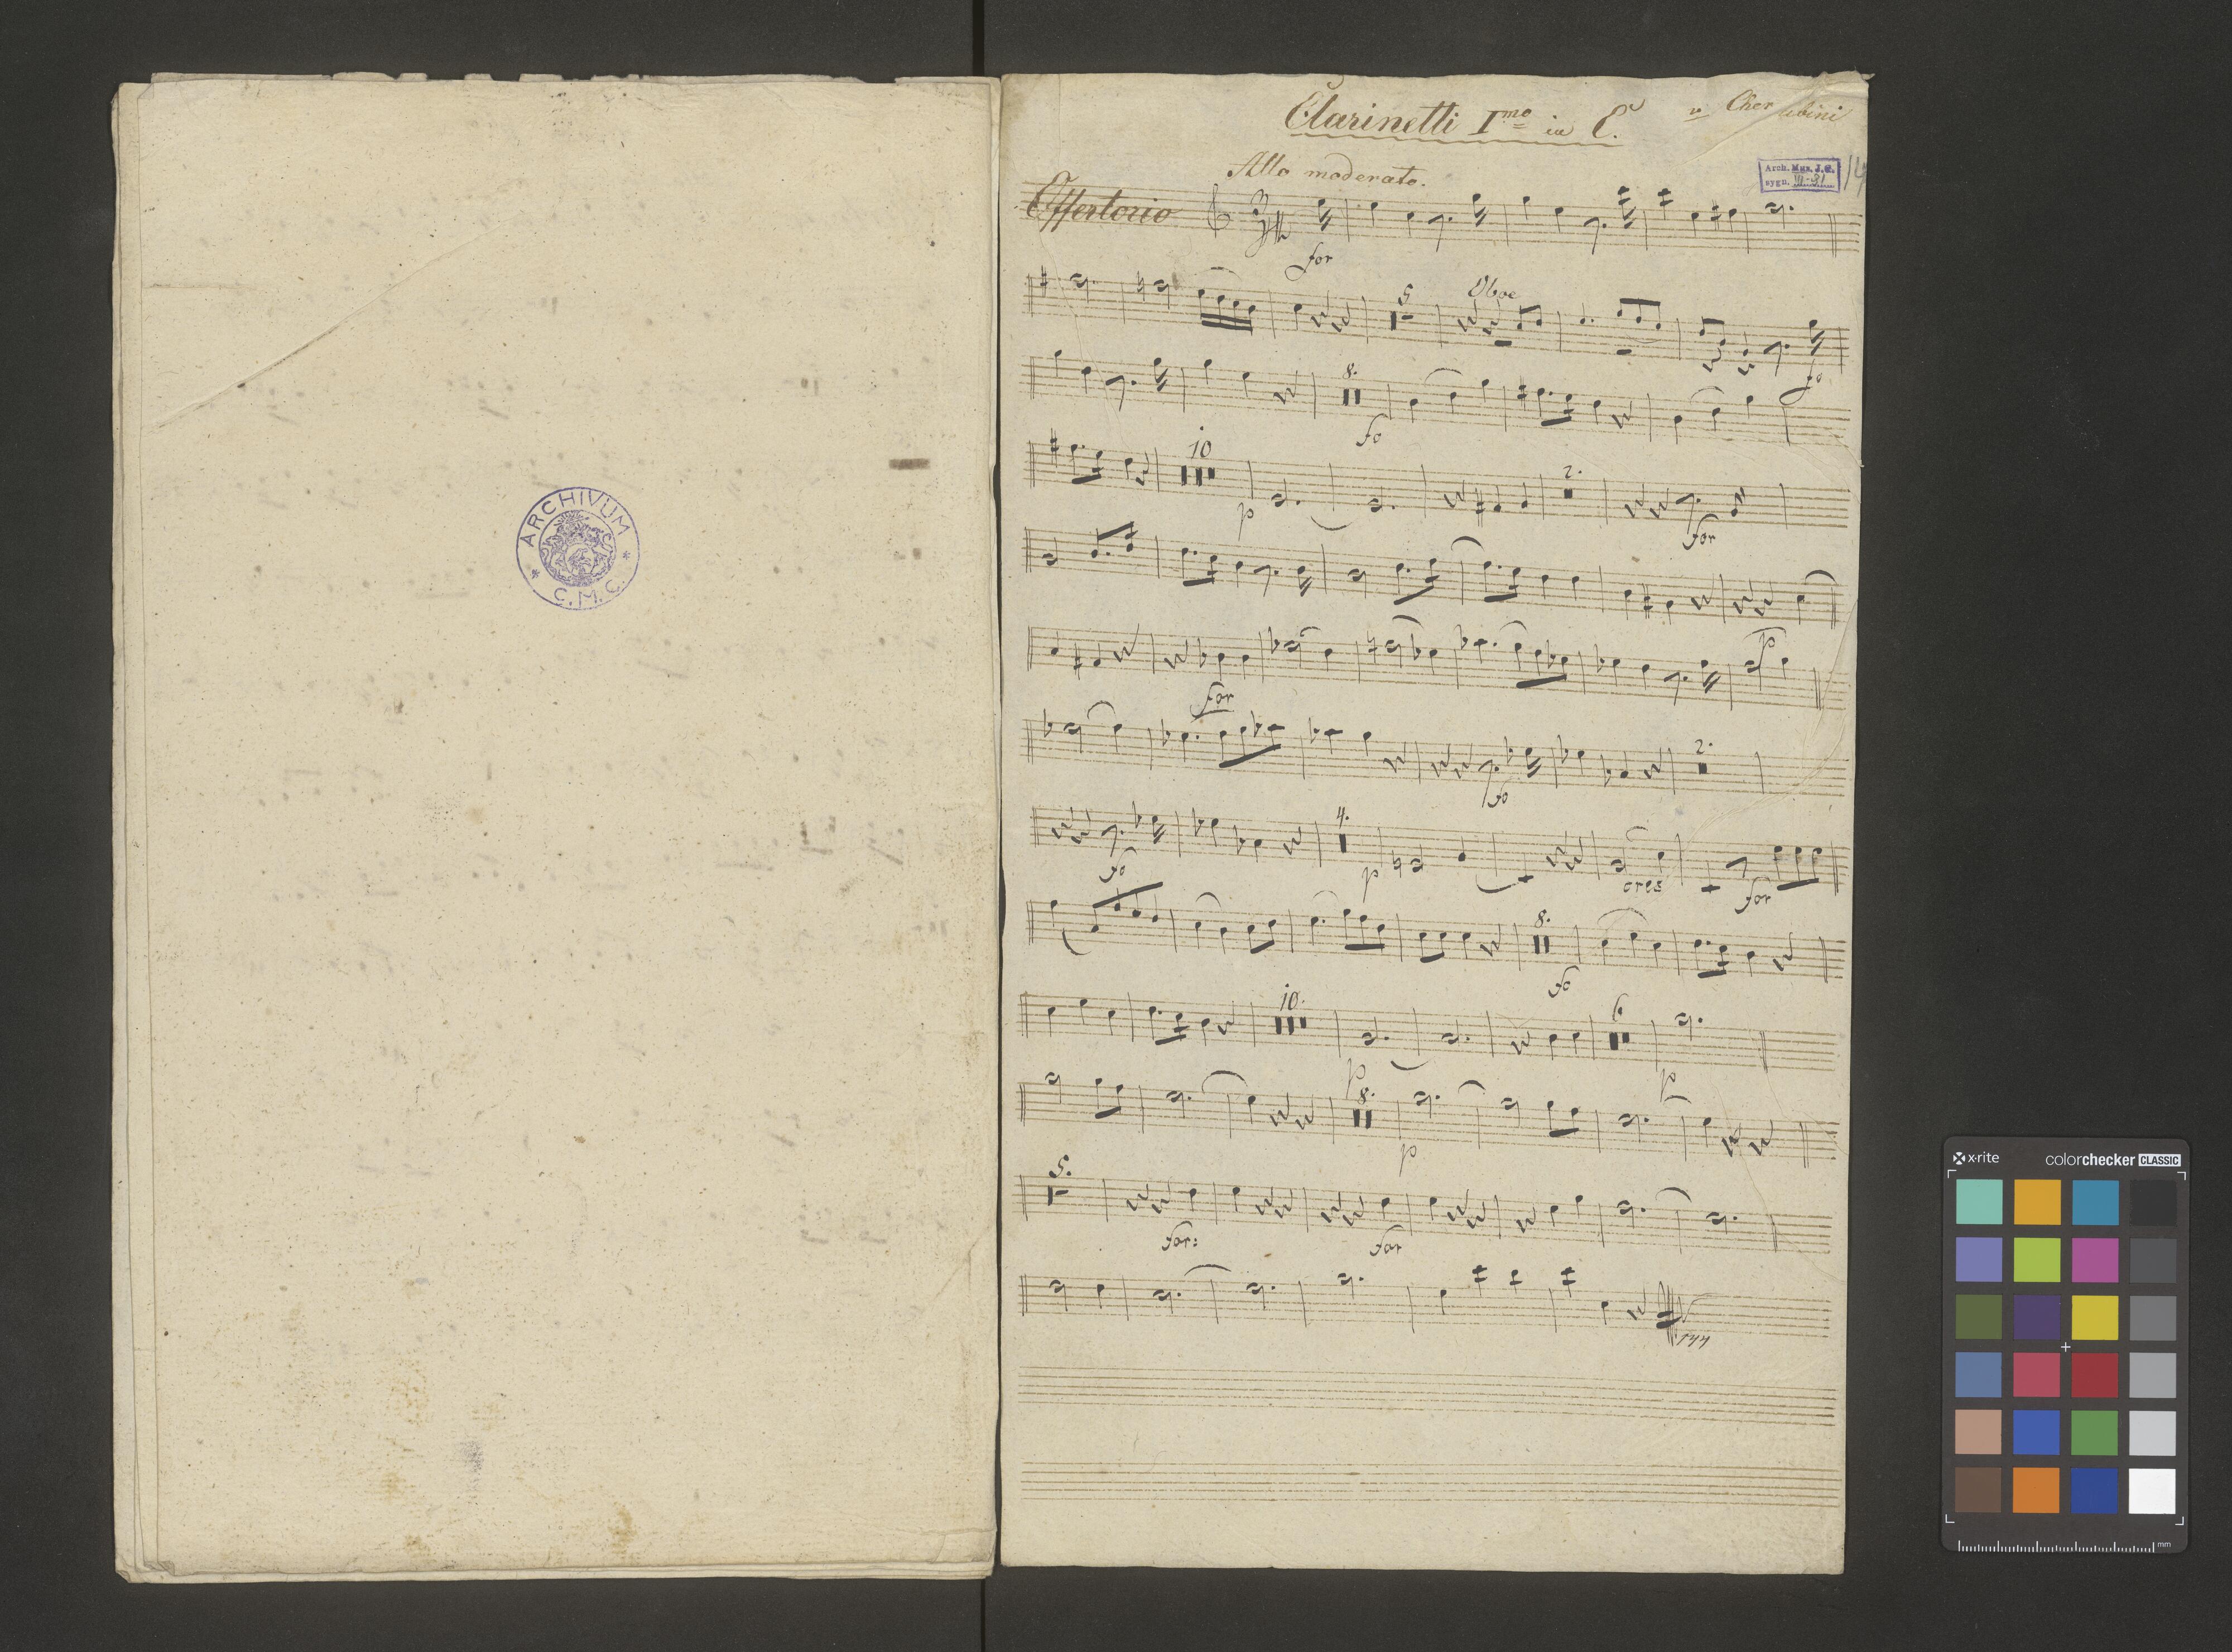 ARCHIVUM
* C.M.C. *
Clarinetti Imo in C.
v Cherubini
Arch. Mus. J.G.
sygn. III-31
14
Allo moderato.
Offertorio
for
5
Oboe
fo
8.
fo
10
p
2.
for
p
for
2.
fo
4.
fo
p
cres
for
8.
fo
10.
6
p
p
8.
p
5.
for:
for
144
x-rite
colorchecker CLASSIC
mm